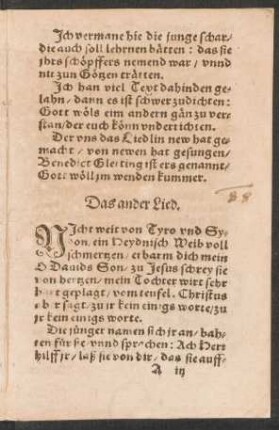 Ich vermane hie die junge schar/
die auch soll lehrnen hätten : das sie
jhrs schöpffers nemend war / vnnd
nit zun Götzen trätten.
Ich han viel Teyt dahinden ge-
lahn / dann es ist schwer zudichten :
Gott wöls eim andern gän zu ver-
stan / der euch könn vnderrichten.
Der vns das Liedlin new hat ge-
macht / von newen hat gesungen /
Benedict Gletting ist ers genannt /
Gott wöll jm wenden kummer.
Das ander Lied.
NIcht weit von Tyro vnd Sy-
don / ein Heydnisch Weib voll
schmertzen / erbarm dich mein
O Dauids Son / zu Jesus schrey sie
von hertzen / mein Tochter wirt sehr
hart geplagt / vom teufel. Christus
ihr sagt / zu jr kein einigs worte / zu
jr kein einigs worte.
Die jünger namen sich jr an / bah-
ten für sie / vnnd sprachen : Ach Herr
hilff jr / laß sie von dir / das sie auff-
A iij